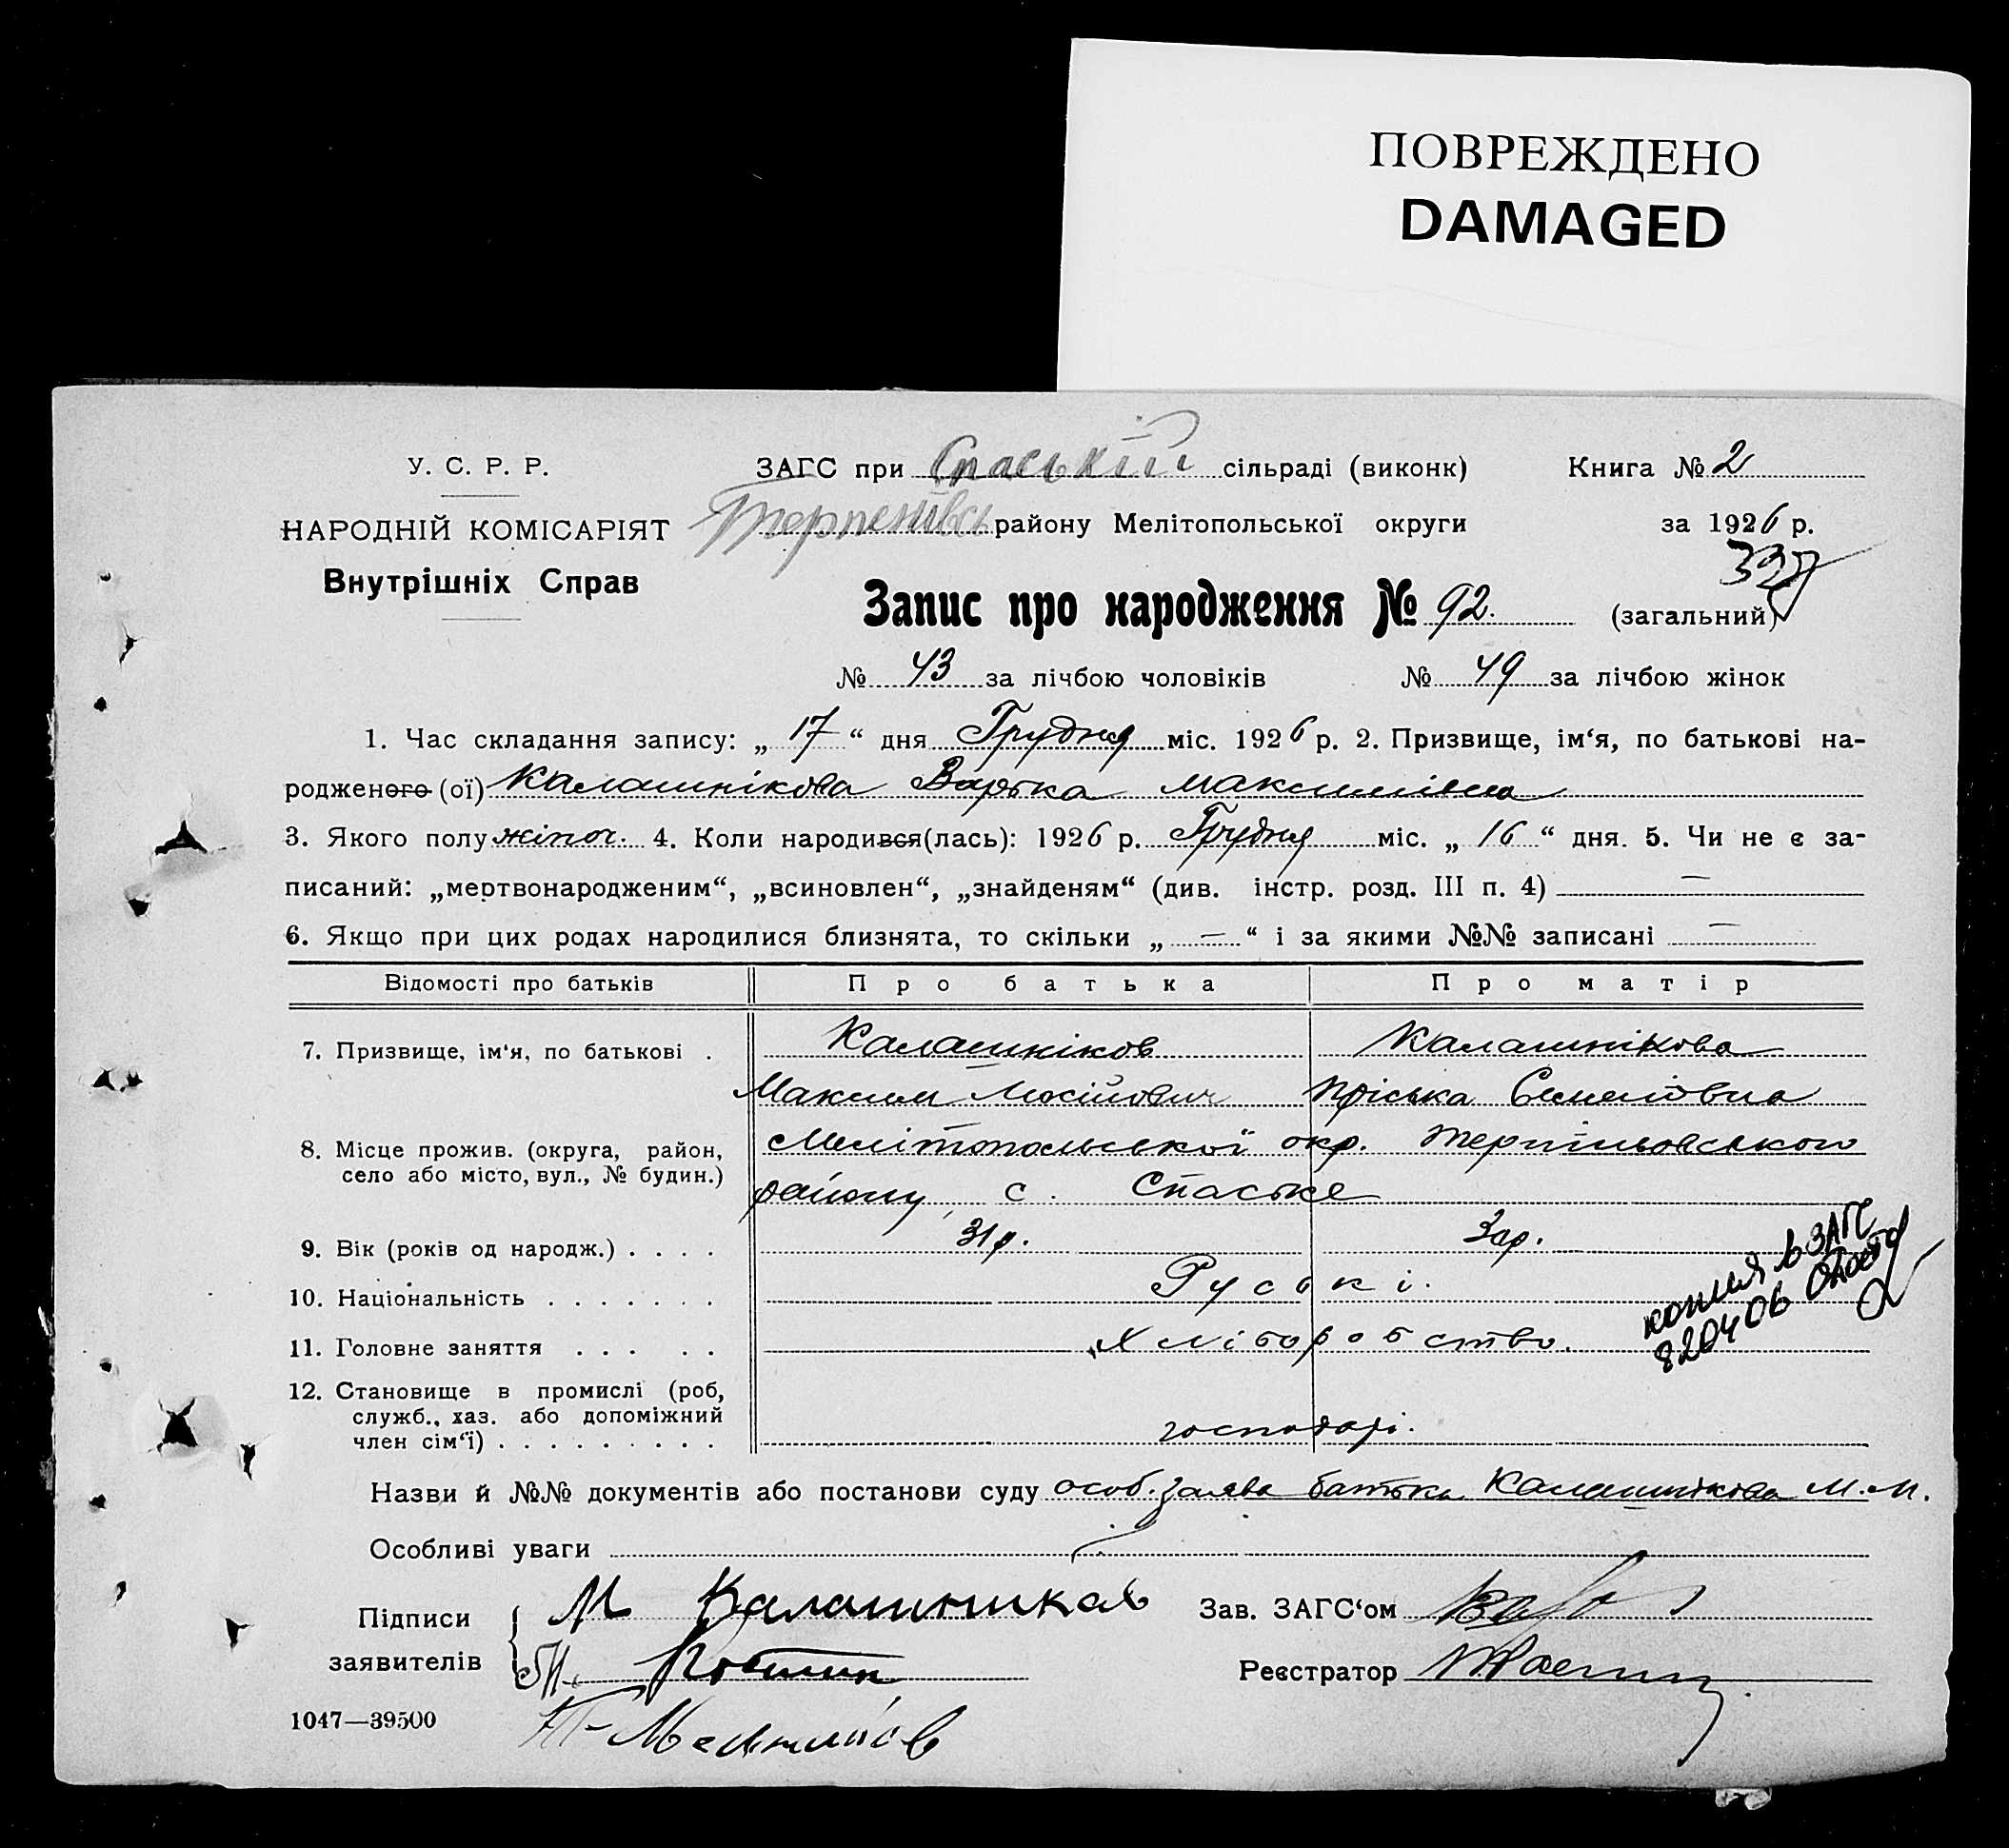 ПОВРЕЖДЕНО
DAMAGED
У. С. Р. Р.
НАРОДНІЙ КОМІСАРІЯТ
Внутрішніх Справ
ЗАГС при Спаській сільраді (виконк) Книга № 2
Терпенівсь району Мелітопольської округи за 1926 р.
Запис про народження № 92. (загальний)
№ 43 за лічбою чоловіків № 49 за лічбою жінок
1. Час складання запису: „ 17 “ дня Грудня міс. 1926 р. 2. Призвище, ім‘я, по батькові на-
родженого (ої) Калашнікова Варка Максимівна
3. Якого полу жіноч. 4. Коли народився(лась): 1926 р. Грудня міс. „ 16 “ дня. 5. Чи не є за-
писаний: „мертвонародженим“, „всиновлен“, „знайденям“ (див. інстр. розд. III п. 4) —
6. Якщо при цих родах народилися близнята, то скільки „ — “ і за якими №№ записані —
Відомості про батьків Про батька Про матір
7. Призвище, ім‘я, по батькові . Калашніков Калашнікова
Максим Пріська Семенівна
8. Місце прожив. (округа, район, село або місто, вул., № будин.) Мелітопольської окр. Терпіньовського
району с. Спаське
9. Вік (років од народж.) . . . . 31 р. 30 р.
10. Національність . . . . . . . Руські.
11. Головне заняття . . . . . Хліборобство.
копия в ЗАГС
820406
12. Становище в промислі (роб,
служб., хаз. або допоміжний
член сім‘ї) . . . . . . . . . господарі.
Назви й №№ документів або постанови суду особ. заява батька Калашнікова М. М.
Особливі уваги
Підписи М Калашникав Зав. ЗАГС‘ом
заявителів Реєстратор
1047—39500